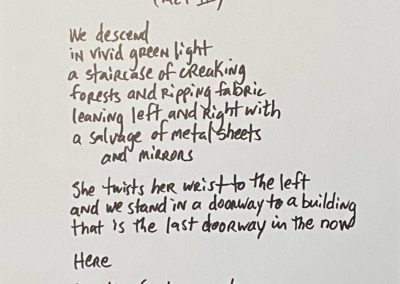 We descend
in vivid green light
a staircase of creaking
forests and ripping fabric
leaning left and right with
a salvage of metal sheets
and mirrors
She twists her wrist to the left
and we stand in a doorway to a building
that is the last doorway in the now
Here